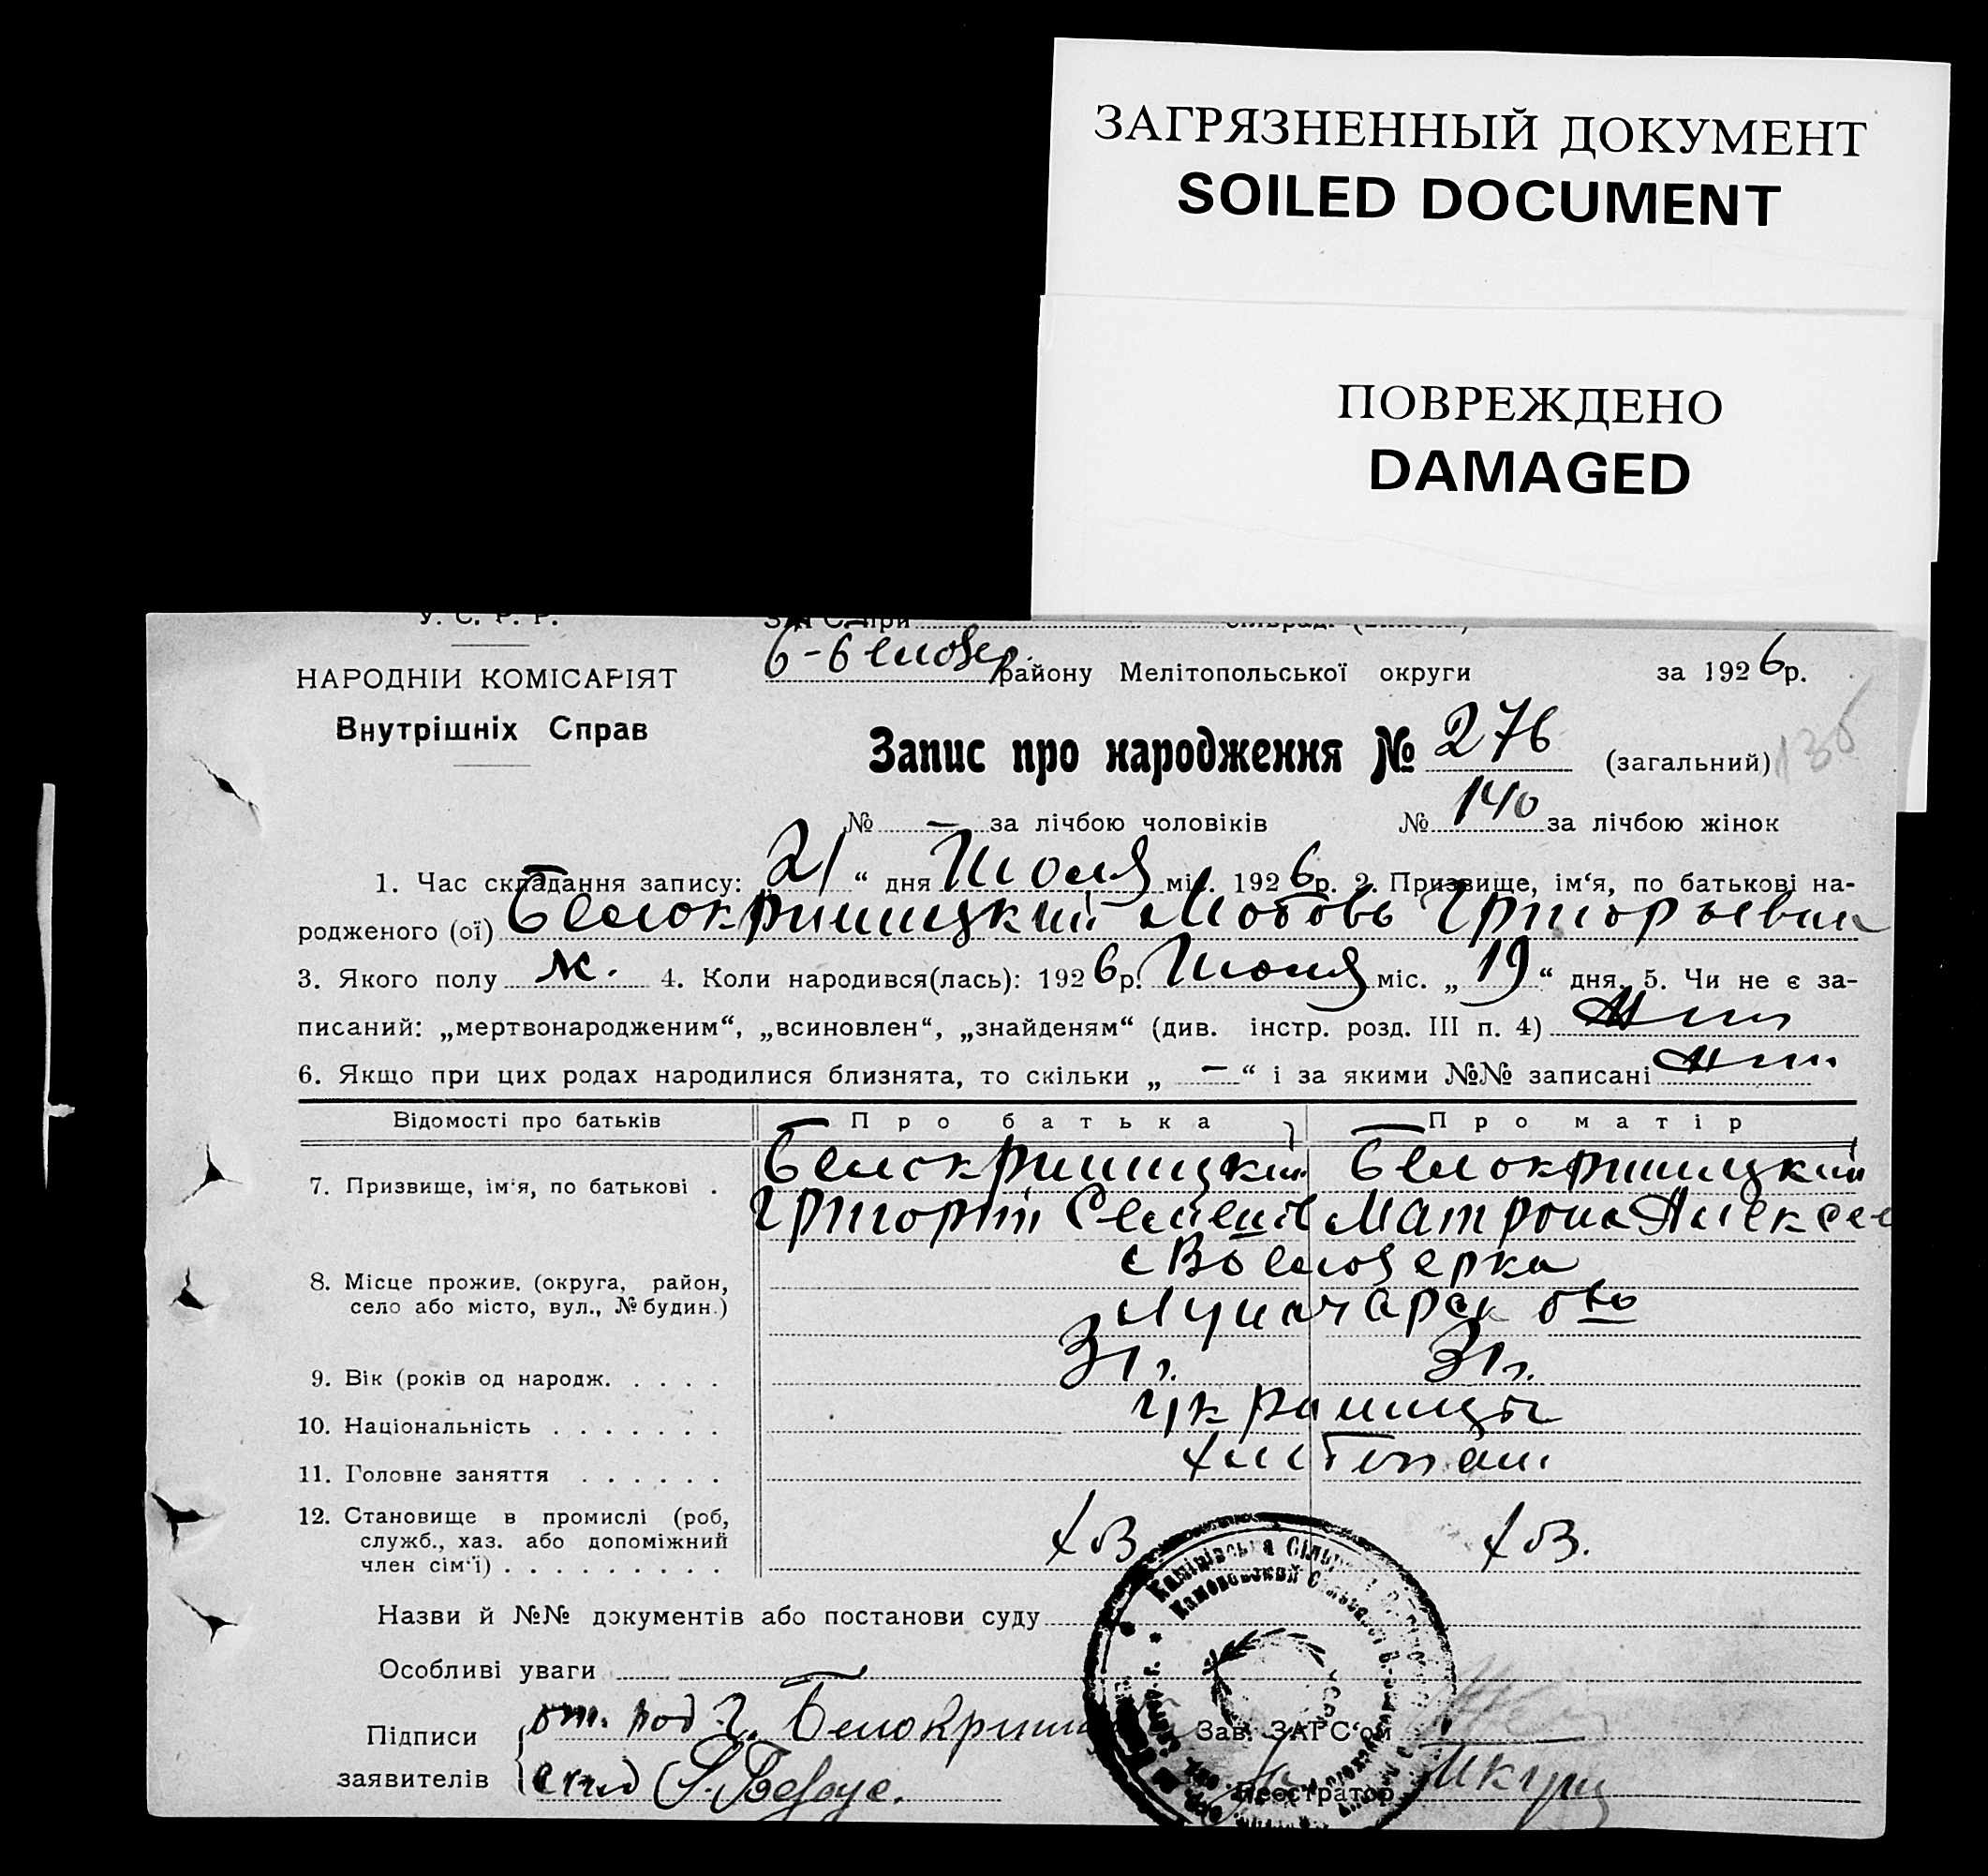 ЗАГРЯЗНЕННЫЙ ДОКУМЕНТ
SOILED DOCUMENT
ПОВРЕЖДЕНО
DAMAGED
У. С. Р. Р.
ЗАГС при
НАРОДНІЙ КОМІСАРІЯТ
Внутрішніх Справ
району Мелітопольської округи за 1926р.
Запис про народження № 276 (загальний)
№ — за лічбою чоловіків № 140 за лічбою жінок
1. Час складання запису: „21“ дня Июля міс. 1926р. 2. Призвище, ім‘я, по батькові на-
родженого (ої) Белокриницкий Любовь Григорьевна
3. Якого полу ж. 4. Коли народився(лась): 1926р. Июля міс. „19“ дня. 5. Чи не є за-
писаний: „мертвонародженим“, „всиновлен“, „знайденям“ (див. інстр. розд. III п. 4)
6. Якщо при цих родах народилися близнята, то скільки „ — “ і за якими №№ записані
Відомості про батьків Про батька Про матір
7. Призвище, ім‘я, по батькові . Белокриницкий Белокриницкий
Григорий Матрона Алексее
8. Місце прожив. (округа, район,
село або місто, вул., № будин.)
9. Вік (років од народж. . . . . 31 г. 31 г.
10. Національність . . . . . . . украинцы
11. Головне заняття . . . . . .
12. Становище в промислі (роб,
служб., хаз. або допоміжний
член сім‘ї) . . . . . . . . . хоз. хоз.
Назви й №№ документів або постанови суду
Особливі уваги
Підписи Белокрини
заявителів
Зав. ЗАГС‘ом
Реєстратор